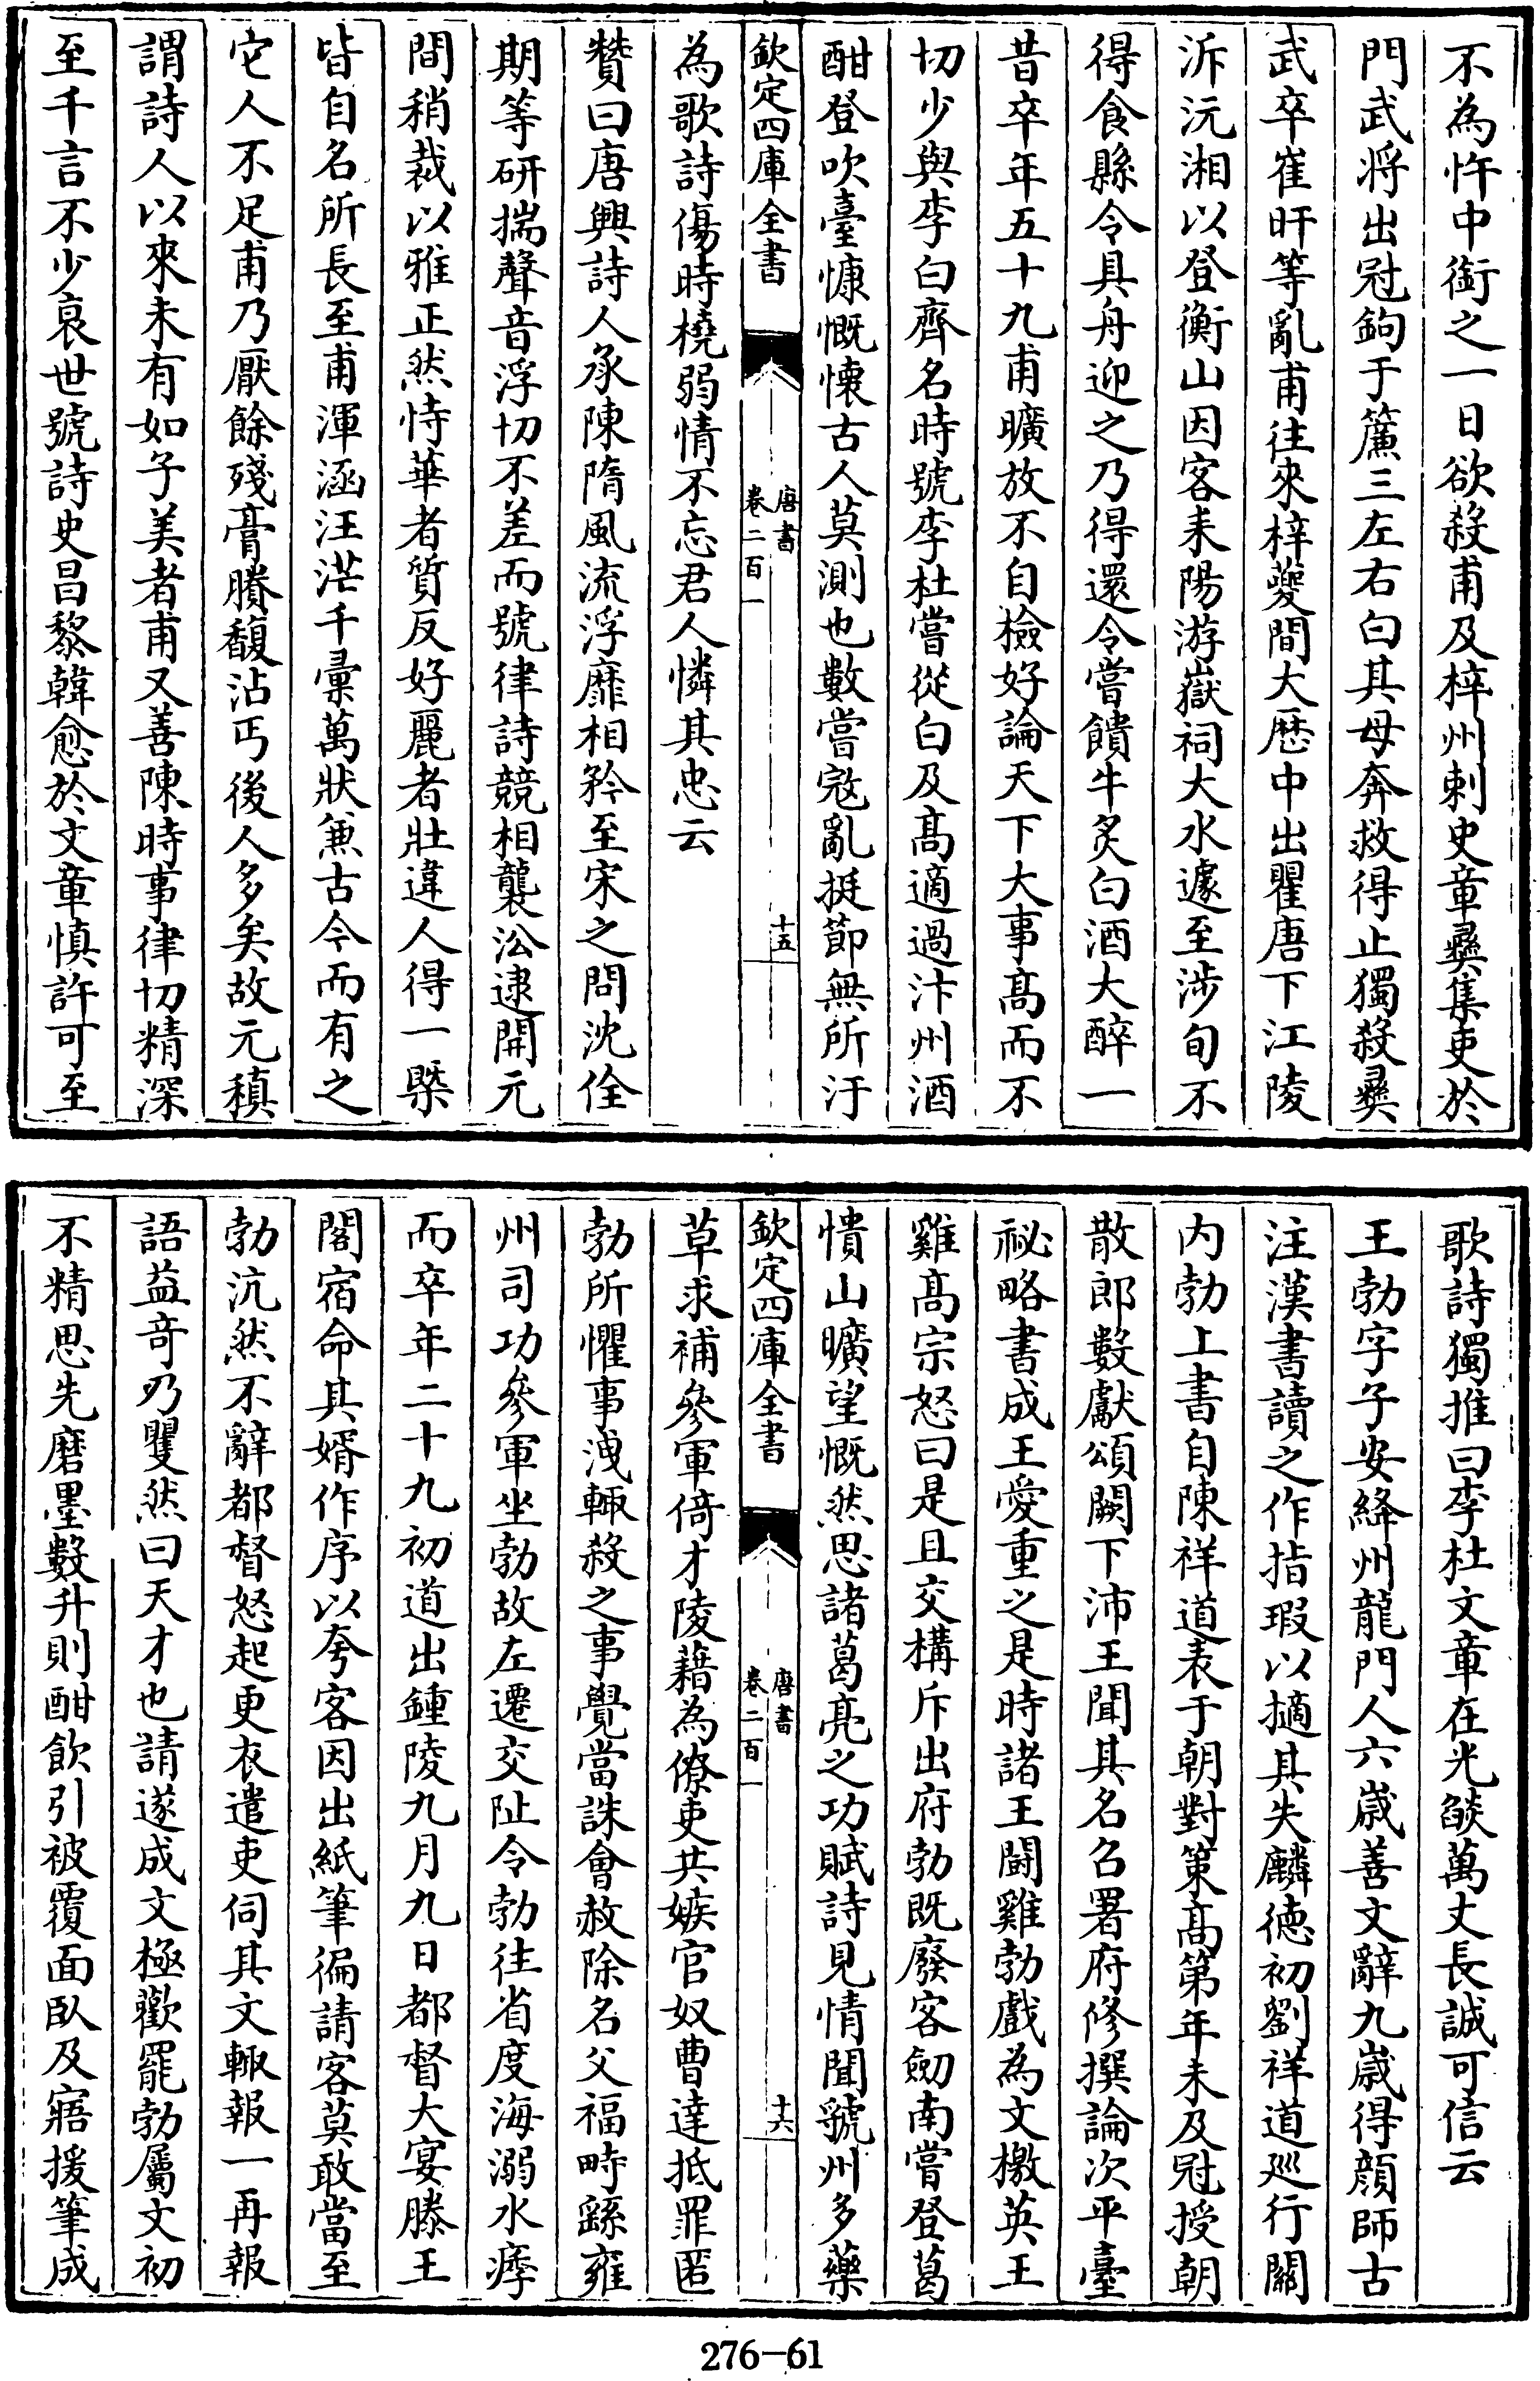 不為忤中銜之一日欲殺甫及梓州刺史章彞集吏於
門武将出冠鉤于簾三左右白其母奔救得止獨殺彞
武卒崔旰等亂甫往來梓夔間大厯中出瞿唐下江陵
泝沅湘以登衡山因客耒陽游嶽祠大水遽至涉旬不
得食縣令具舟迎之乃得還令嘗饋牛炙白酒大醉一
昔卒年五十九甫曠放不自檢好論天下大事髙而不
切少與李白齊名時號李杜嘗從白及髙適過汴州酒
酣登吹臺慷慨懷古人莫測也數嘗寇亂挺節無所汙
欽定四庫全書
唐書
卷二百一
十五
為歌詩傷時橈弱情不忘君人憐其忠云
贊曰唐興詩人承陳隋風流浮靡相矜至宋之問沈佺
期等研揣聲音浮切不差而號律詩競相襲沿逮開元
間稍裁以雅正然恃華者質反好麗者壯違人得一槩
皆自名所長至甫渾涵汪茫千彚萬狀兼古今而有之
它人不足甫乃厭餘殘膏賸馥沾丐後人多矣故元稹
謂詩人以來未有如子美者甫又善陳時事律切精深
至千言不少衰世號詩史昌黎韓愈於文章慎許可至
歌詩獨推曰李杜文章在光燄萬丈長誠可信云
王勃字子安絳州龍門人六嵗善文辭九嵗得顔師古
注漢書讀之作指瑕以擿其失麟徳初劉祥道廵行闗
内勃上書自陳祥道表于朝對策髙第年未及冠授朝
散郎數獻頌闕下沛王聞其名召署府修撰論次平臺
祕略書成王愛重之是時諸王鬭雞勃戯為文檄英王
雞髙宗怒曰是且交構斥出府勃既廢客劒南嘗登葛
憒山曠望慨然思諸葛亮之功賦詩見情聞虢州多藥
欽定四庫全書
唐書
卷二百一
十六
草求補參軍倚才陵藉為僚吏共嫉官奴曹達抵罪匿
勃所懼事洩輒殺之事覺當誅會赦除名父福畤繇雍
州司功參軍坐勃故左遷交阯令勃往省度海溺水痵
而卒年二十九初道出鍾陵九月九日都督大宴滕王
閣宿命其壻作序以夸客因出紙筆徧請客莫敢當至
勃沆然不辭都督怒起更衣遣吏伺其文輒報一再報
語益竒乃矍然曰天才也請遂成文極歡罷勃屬文初
不精思先磨墨數升則酣飲引被覆面臥及寤援筆成
276-61